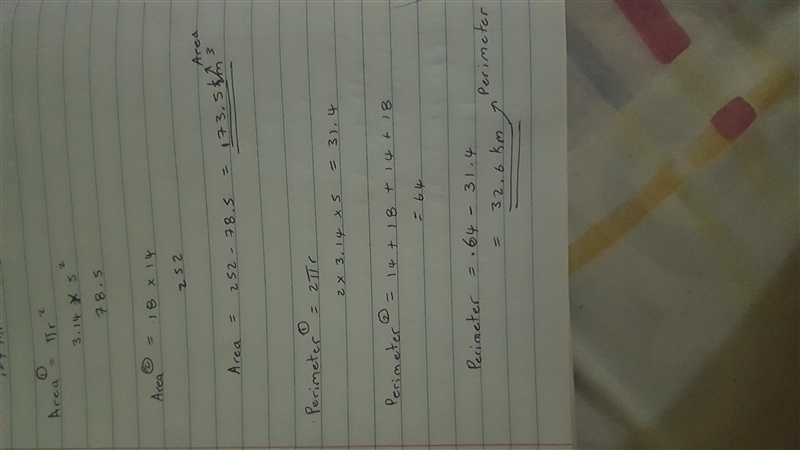 Area ① = πr²
3.14 x 5²
78.5
Area ② = 18 x 14
252
Area = 252 - 78.5 = 173.5 km³
Area
Perimeter ① = 2πr
2 x 3.14 x 5 = 31.4
Perimeter ② = 14 + 18 + 14 + 18
= 64
Perimeter = .64 - 31.4
= 32.6 km
Perimeter